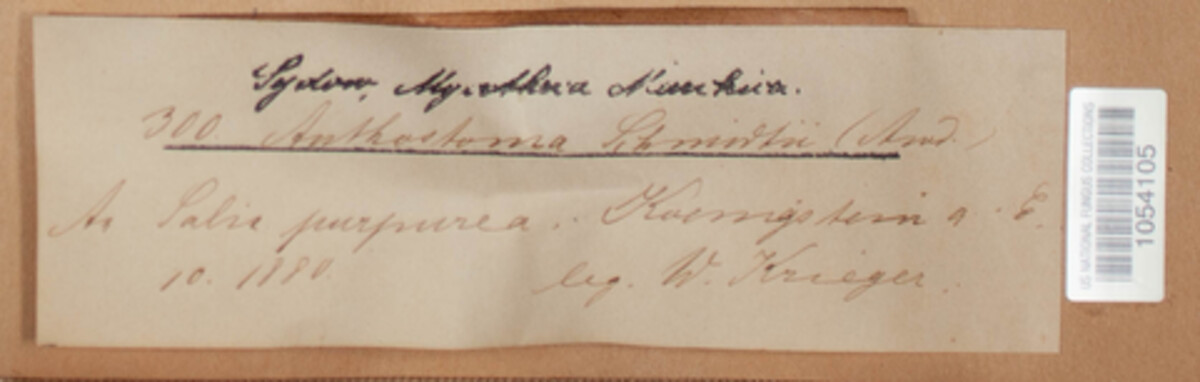 Sydow, Mycotheca Marchica.
300. Anthostoma Schmidtii (Awd.)
An Salix purpurea. Koenigstein a. E.
10. 1880. leg. W. Krieger.
US NATIONAL FUNGUS COLLECTIONS
1054105